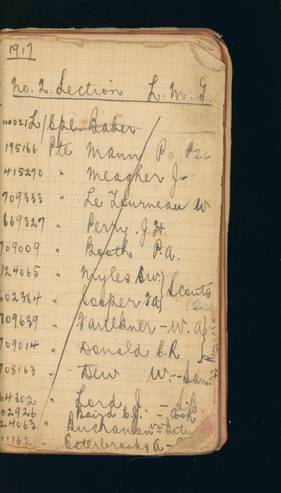 1917
No. 2. Section L. M. G.
110021 L/Cpl. Baker
195166 Pte Mann P.
415270 " Meagher J.
709333 " Le Tourneau W
669327 " Perry. J. H.
709009 " Booth P. A.
124065 " Myles S W } Scouts
602364 " Cooper
709639 " Faulkner - W. A
709014 " Donald C. R
708163 " Dew W. -
64302 " Lord J. -
02926 " Baird - Cook
24063 " Buchanan
11162 " Esterbrooks A -